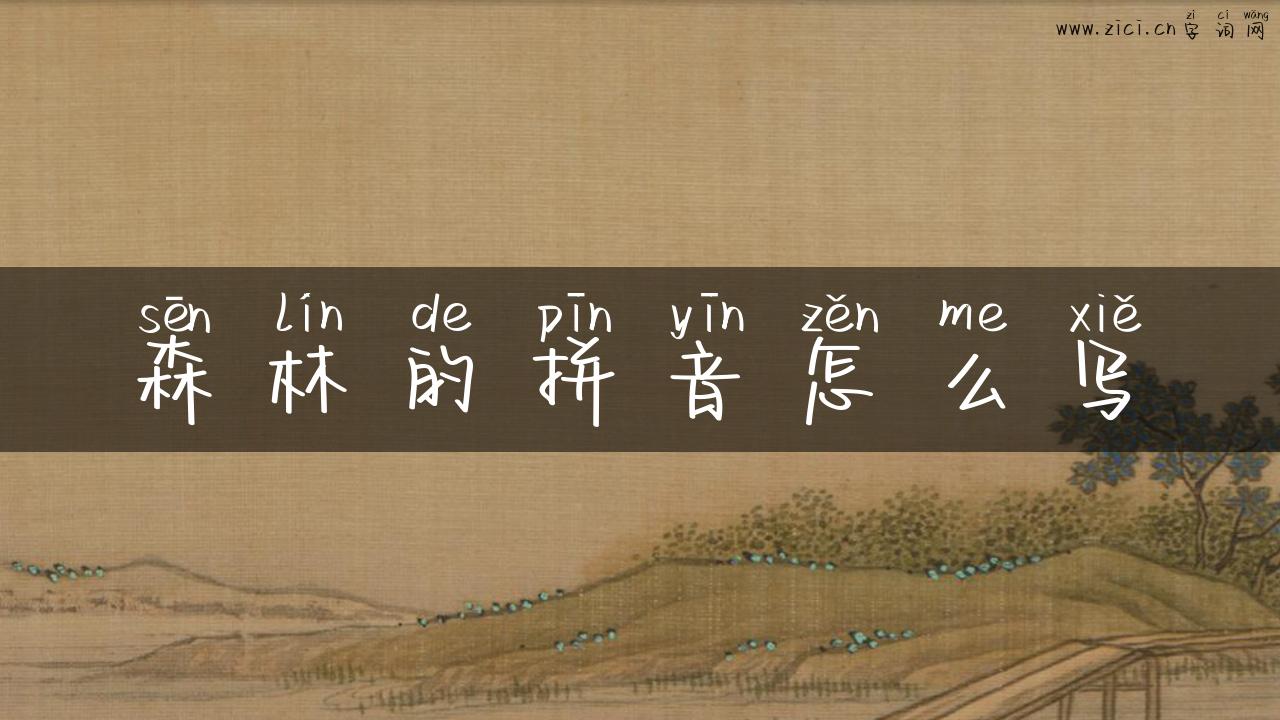 zì cí wǎng
www.zici.cn字词网
sēn lín de pīn yīn zěn me xiě
森林的拼音怎么写